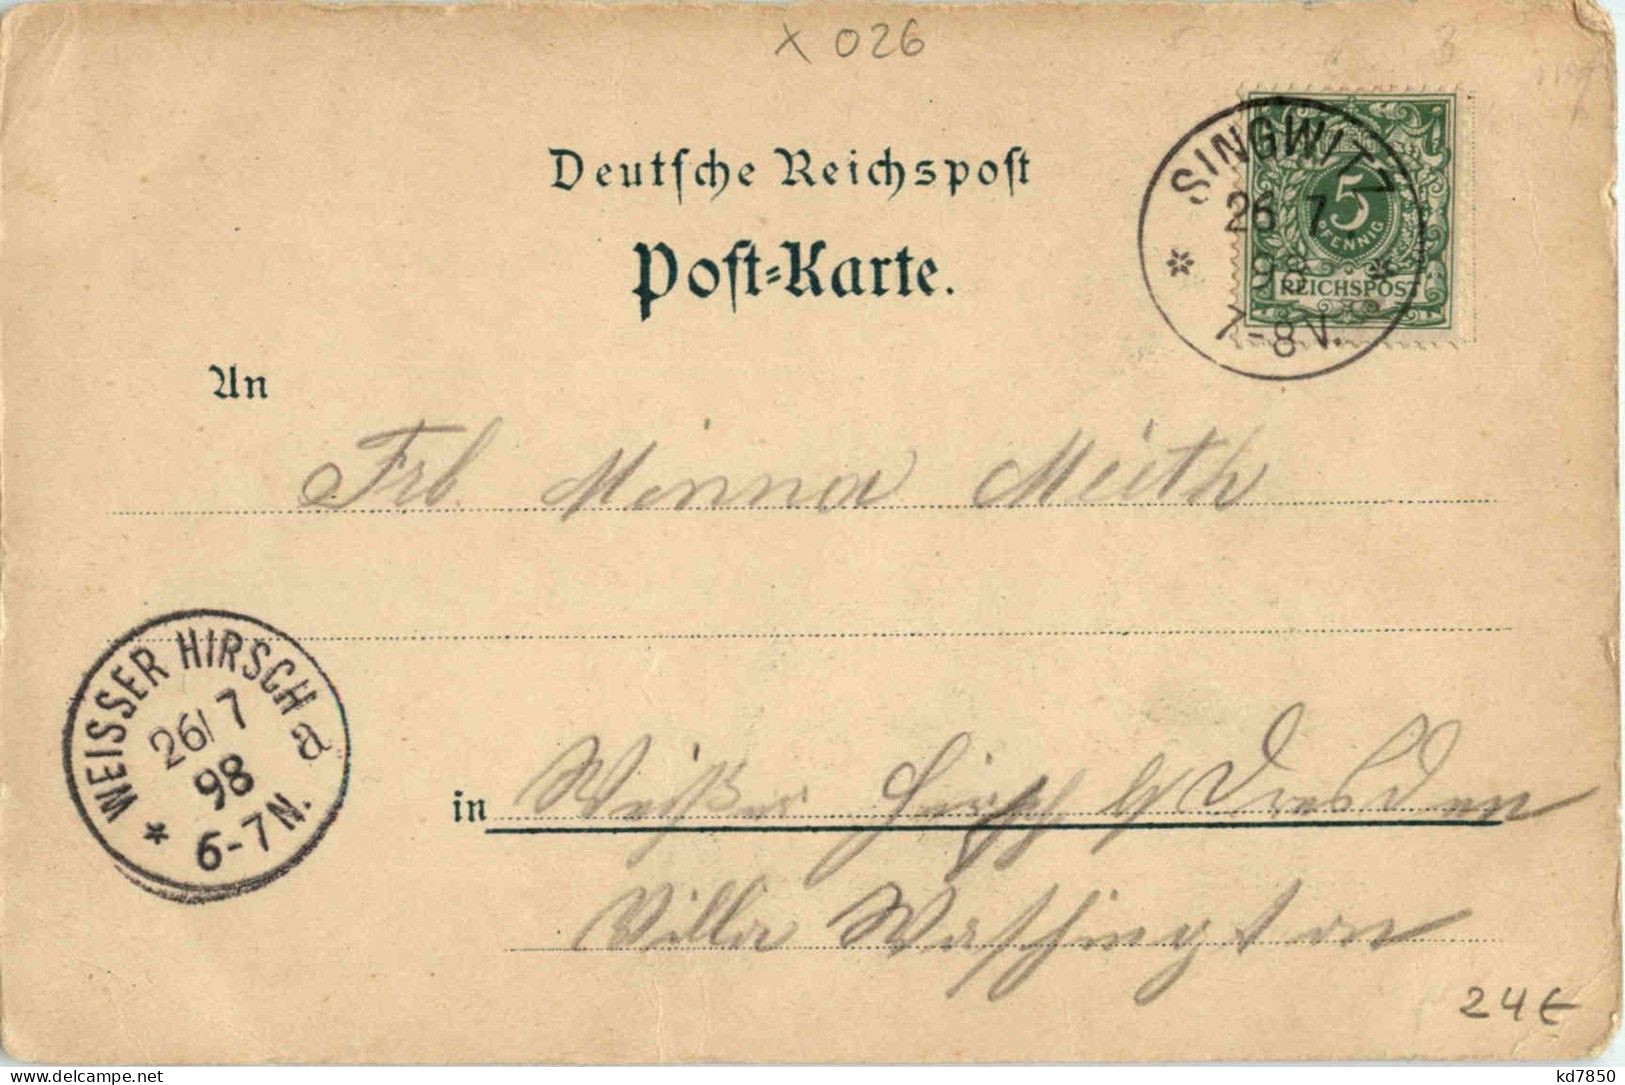 x 026
Deutsche Reichspost
Post-Karte.
SINGWITZ
26 7
98
7-8V.
5
PFENNIG
REICHSPOST
An
Minna Mieth
WEISSER HIRSCH
a
26/7
98
6-7N.
in Weißer Hirsch b/ Dresden
Villa Washington
24€
kd7850